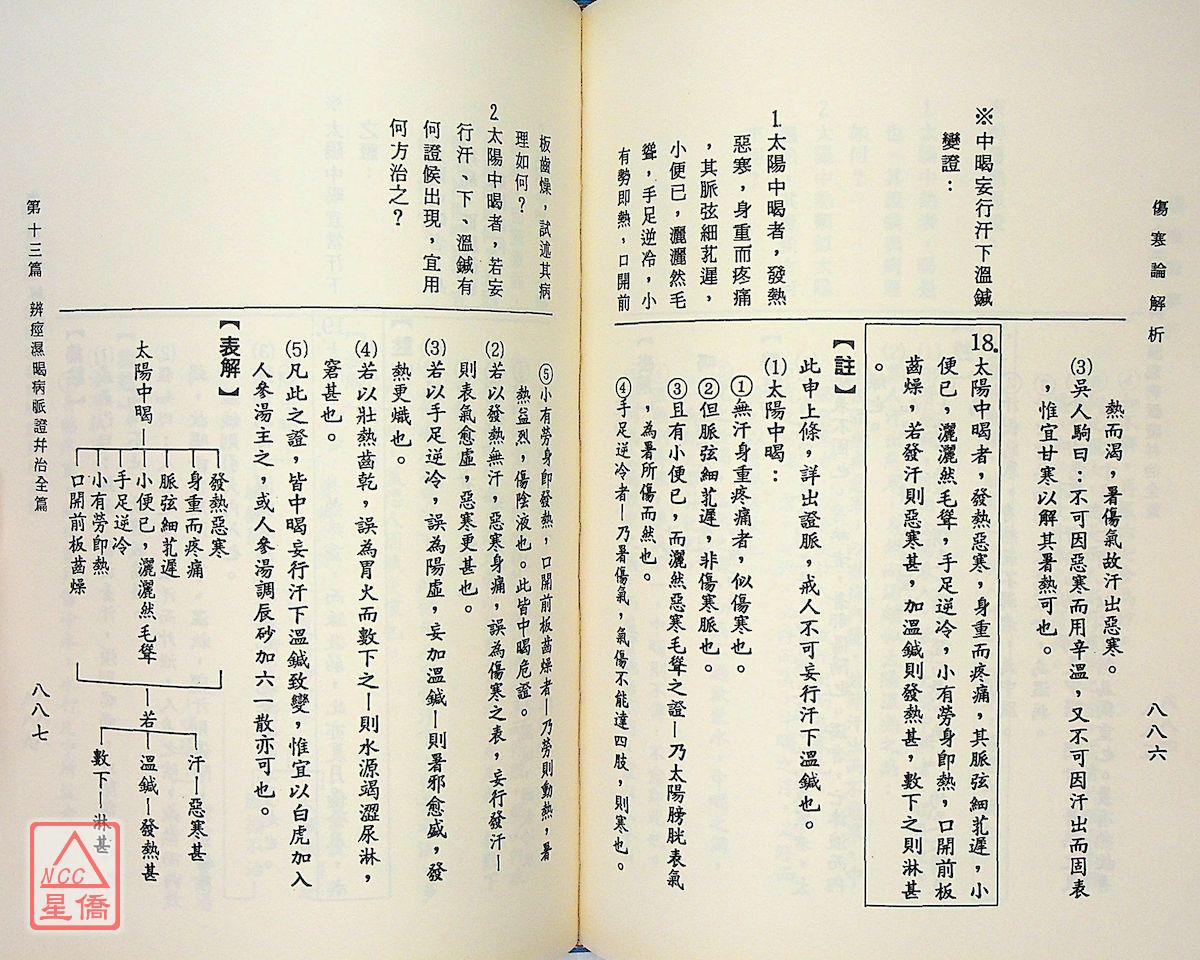 傷寒論解析
八八六
※中暍妄行汗下溫鍼
變證：
1.太陽中暍者，發熱
惡寒，身重而疼痛
，其脈弦細芤遲，
小便已，灑灑然毛
聳，手足逆冷，小
有勞即熱，口開前
熱而渴，暑傷氣故汗出惡寒。
(3)吳人駒曰：不可因惡寒而用辛溫，又不可因汗出而固表
，惟宜甘寒以解其暑熱可也。
18.太陽中暍者，發熱惡寒，身重而疼痛，其脈弦細芤遲，小
便已，灑灑然毛聳，手足逆冷，小有勞身即熱，口開前板
齒燥，若發汗則惡寒甚，加溫鍼則發熱甚，數下之則淋甚
。
【註】
此申上條，詳出證脈，戒人不可妄行汗下溫鍼也。
(1)太陽中暍：
①無汗身重疼痛者，似傷寒也。
②但脈弦細芤遲，非傷寒脈也。
③且有小便已，而灑然惡寒毛聳之證—乃太陽膀胱表氣
，為暑所傷而然也。
④手足逆冷者—乃暑傷氣，氣傷不能達四肢，則寒也。
板齒燥，試述其病
理如何？
2.太陽中暍者，若妄
行汗、下、溫鍼有
何證候出現，宜用
何方治之？
⑤小有勞身即發熱，口開前板齒燥者—乃勞則動熱，暑
熱益烈，傷陰液也。此皆中暍危證。
(2)若以發熱無汗，惡寒身痛，誤為傷寒之表，妄行發汗—
則表氣愈虛，惡寒更甚也。
(3)若以手足逆冷，誤為陽虛，妄加溫鍼—則暑邪愈盛，發
熱更熾也。
(4)若以壯熱齒乾，誤為胃火而數下之—則水源竭澀尿淋，
窘甚也。
(5)凡此之證，皆中暍妄行汗下溫鍼致變，惟宜以白虎加入
人參湯主之，或人參湯調辰砂加六一散亦可也。
【表解】
太陽中暍—
發熱惡寒
身重而疼痛
脈弦細芤遲
小便已，灑灑然毛聳
手足逆冷
小有勞即熱
口開前板齒燥
—若—
汗—惡寒甚
溫鍼—發熱甚
數下—淋甚
第十三篇 辨痙濕暍病脈證并治全篇
八八七
NCC
星僑